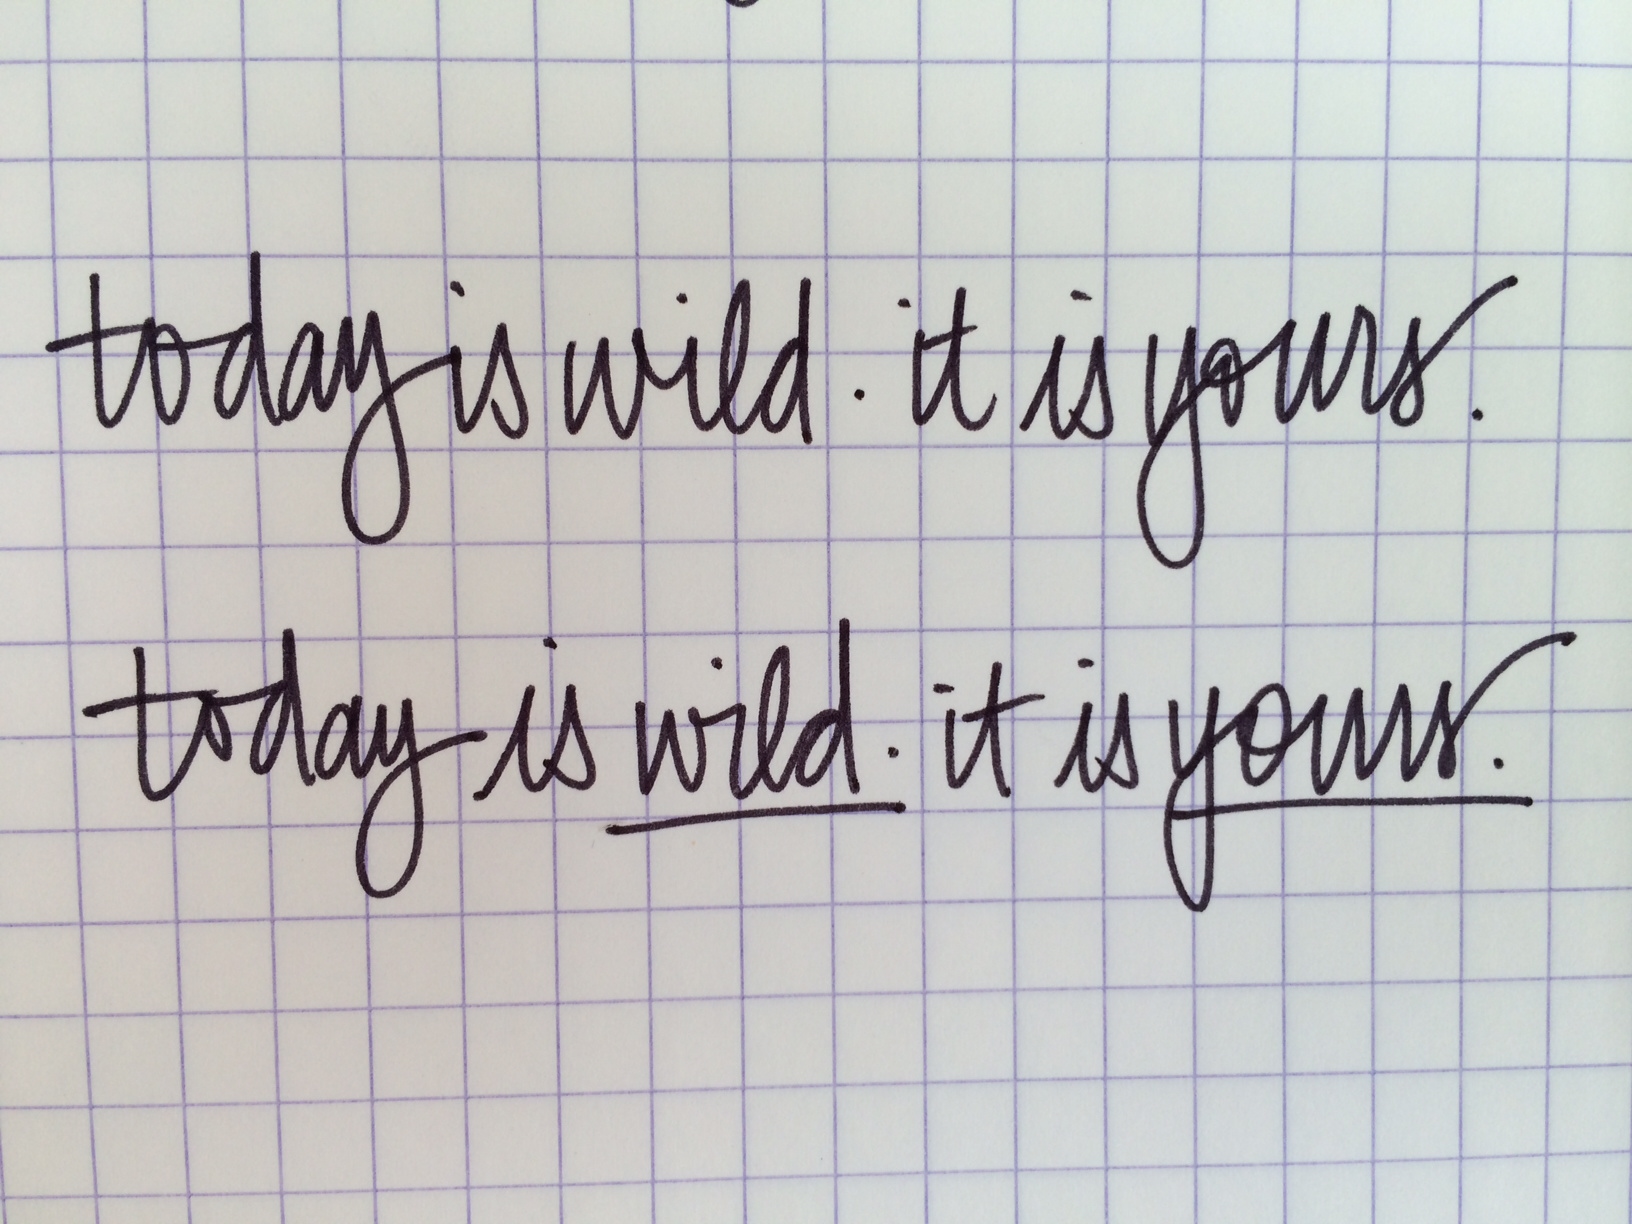 today is wild. it is yours.
today is wild. it is yours.